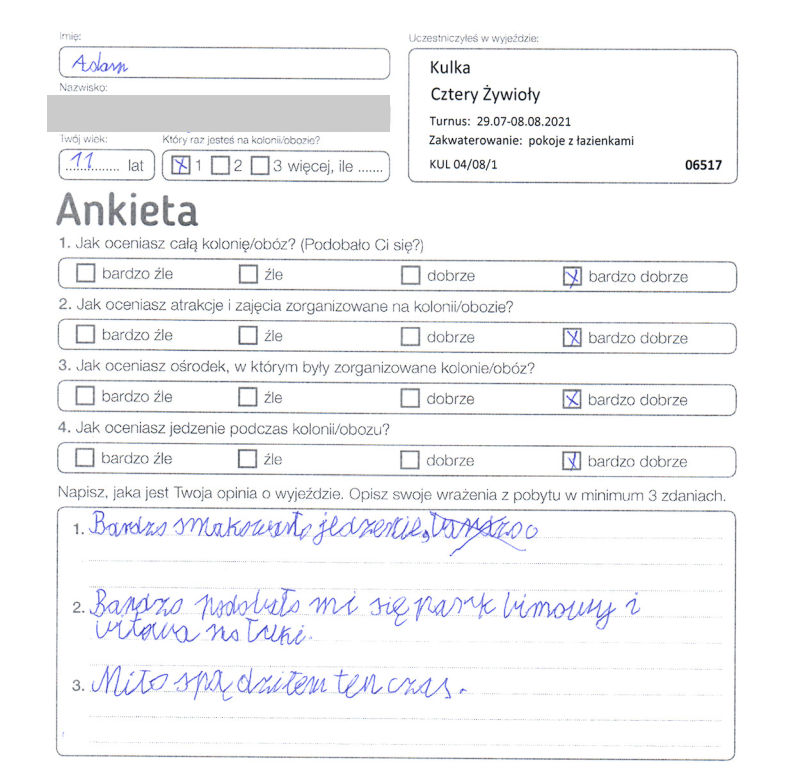 Imię:
Adam
Nazwisko:
Twój wiek: Który raz jesteś na kolonii/obozie?
11 lat 1 2 3 więcej, ile .......
Uczestniczyłeś w wyjeździe:
Kulka
Cztery Żywioły
Turnus: 29.07-08.08.2021
Zakwaterowanie: pokoje z łazienkami
KUL 04/08/1 06517
Ankieta
1. Jak oceniasz całą kolonię/obóz? (Podobało Ci się?)
bardzo źle źle dobrze bardzo dobrze
2. Jak oceniasz atrakcje i zajęcia zorganizowane na kolonii/obozie?
bardzo źle źle dobrze bardzo dobrze
3. Jak oceniasz ośrodek, w którym były zorganizowane kolonie/obóz?
bardzo źle źle dobrze bardzo dobrze
4. Jak oceniasz jedzenie podczas kolonii/obozu?
bardzo źle źle dobrze bardzo dobrze
Napisz, jaka jest Twoja opinia o wyjeździe. Opisz swoje wrażenia z pobytu w minimum 3 zdaniach.
1. Bardzo smakowało jedzenie
2. Bardzo podobało mi się park limowy i
bitwa na
3. Miło spędziłem ten czas.